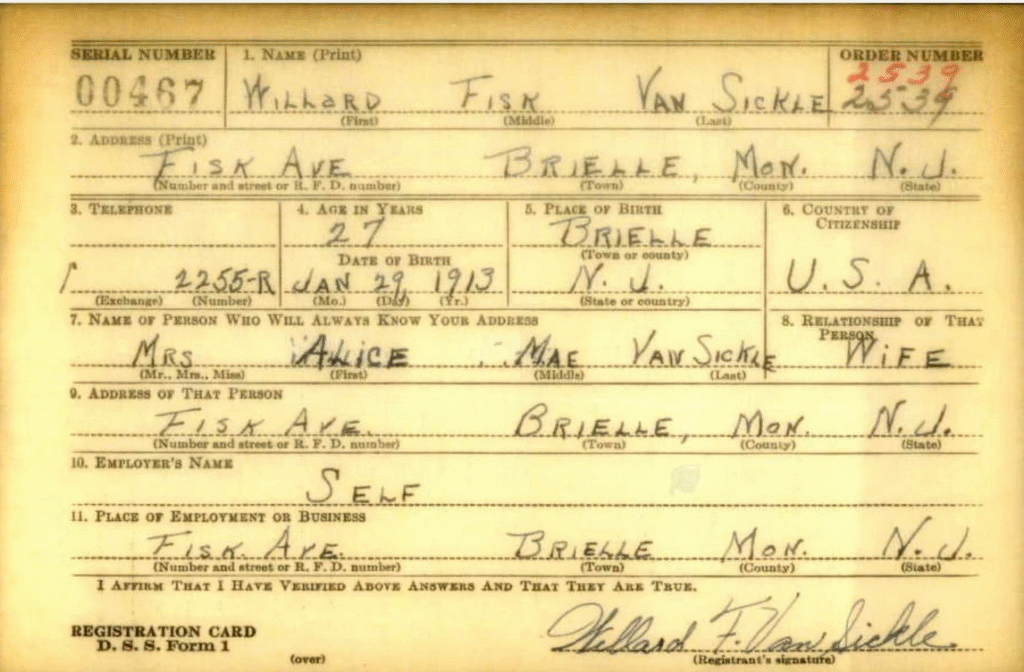 SERIAL NUMBER 1. NAME (Print) ORDER NUMBER
2539
00467 WILLARD FISK VAN SICKLE 2539
(First) (Middle) (Last)
2. ADDRESS (Print)
FISK AVE BRIELLE, MON. N.J.
(Number and street or R. F. D. number) (Town) (County) (State)
3. TELEPHONE 4. AGE IN YEARS 5. PLACE OF BIRTH 6. COUNTRY OF CITIZENSHIP
27 BRIELLE
DATE OF BIRTH (Town or county)
2255-R JAN 29, 1913 N. J. U. S. A.
(Exchange) (Number) (Mo.) (Day) (Yr.) (State or country)
7. NAME OF PERSON WHO WILL ALWAYS KNOW YOUR ADDRESS 8. RELATIONSHIP OF THAT PERSON
MRS ALICE MAE VAN SICKLE WIFE
(Mr., Mrs., Miss) (First) (Middle) (Last)
9. ADDRESS OF THAT PERSON
FISK AVE. BRIELLE, MON. N.J.
(Number and street or R. F. D. number) (Town) (County) (State)
10. EMPLOYER'S NAME
SELF
11. PLACE OF EMPLOYMENT OR BUSINESS
FISK. AVE. BRIELLE MON. N.J.
(Number and street or R. F. D. number) (Town) (County) (State)
I AFFIRM THAT I HAVE VERIFIED ABOVE ANSWERS AND THAT THEY ARE TRUE.
REGISTRATION CARD Willard F. Van Sickle
D. S. S. Form 1 (over) (Registrant's signature)